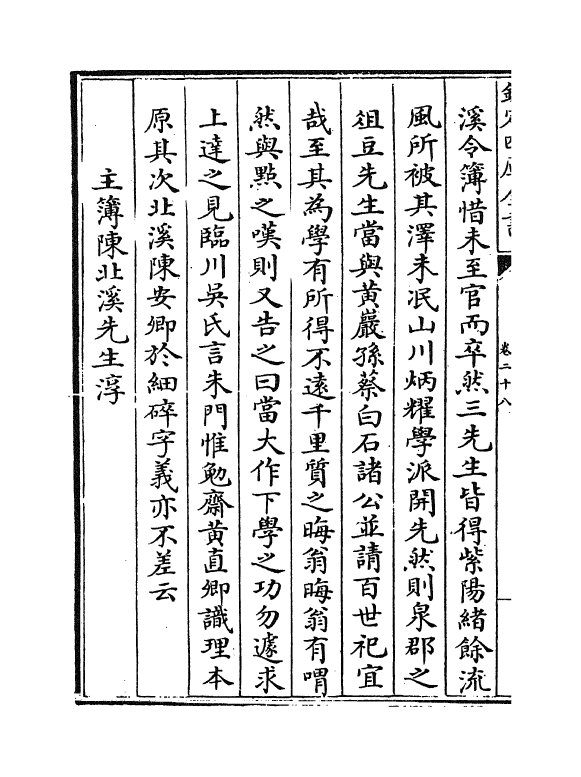 欽定四庫全書
卷二十八
溪令簿惜未至官而卒然三先生皆得紫陽緒餘流
風所被其澤未泯山川炳耀學派開先然則泉郡之
俎豆先生當與黄巖孫蔡白石諸公並請百世祀宜
哉至其為學有所得不逺千里質之晦翁晦翁有喟
然與㸃之嘆則又告之曰當大作下學之功勿遽求
上達之見臨川吳氏言朱門惟勉齋黄直卿識理本
原其次北溪陳安卿於細碎字義亦不差云
主簿陳北溪先生淳